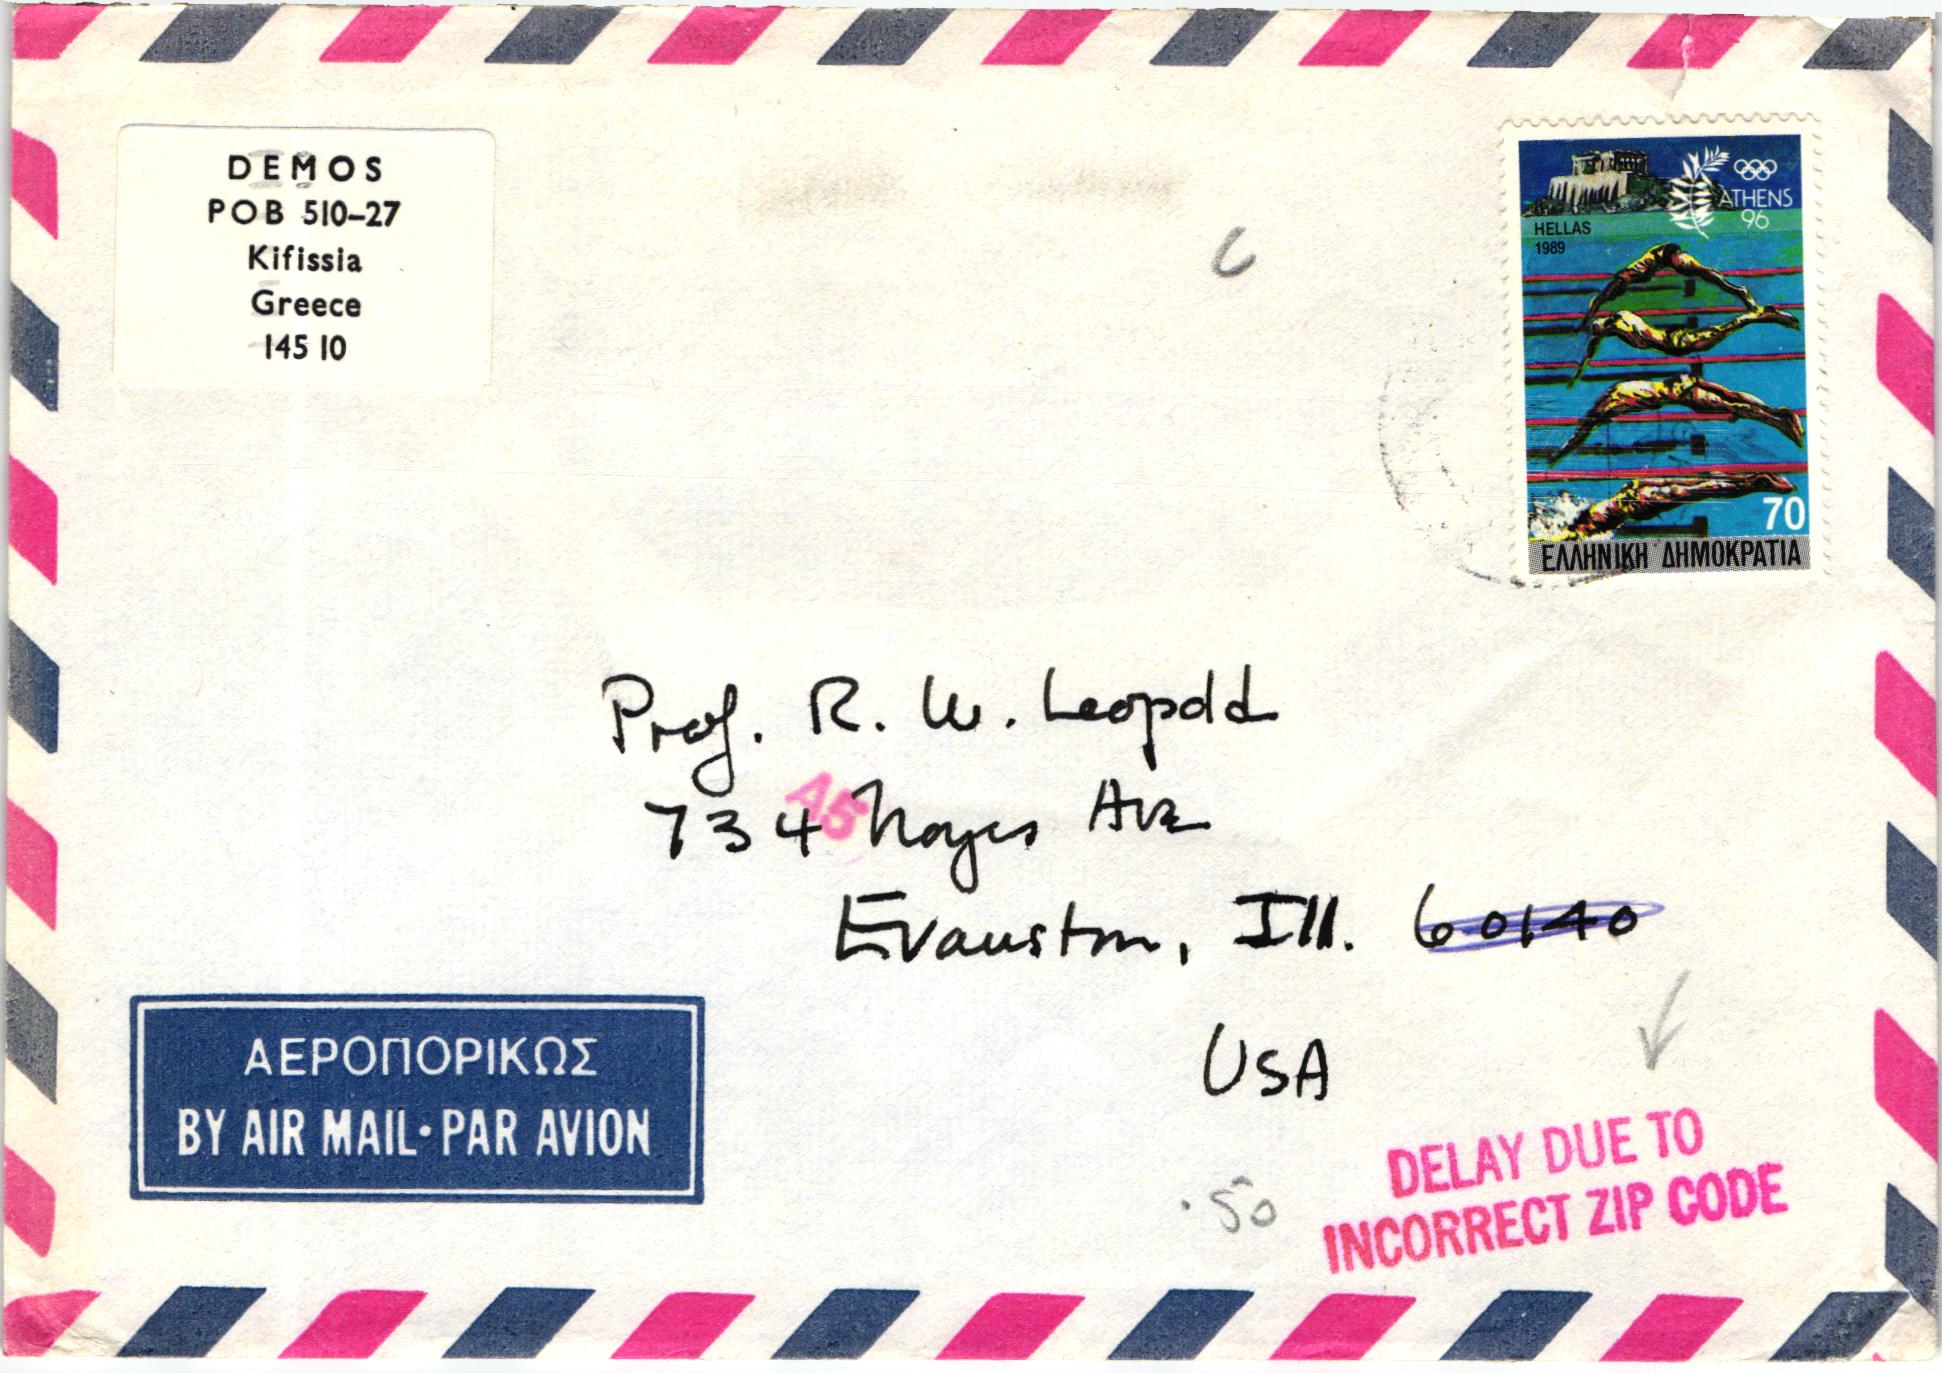 DEMOS
POB 510-27
Kifissia
Greece
145 10
ATHENS
96
HELLAS
1989
70
ΕΛΛΗΝΙΚΗ ΔΗΜΟΚΡΑΤΙΑ
Prof. R. W. Leopold
A5
734 Noyes Ave
Evanston, Ill. 60140
USA
ΑΕΡΟΠΟΡΙΚΩΣ
BY AIR MAIL · PAR AVION
DELAY DUE TO
INCORRECT ZIP CODE
.50